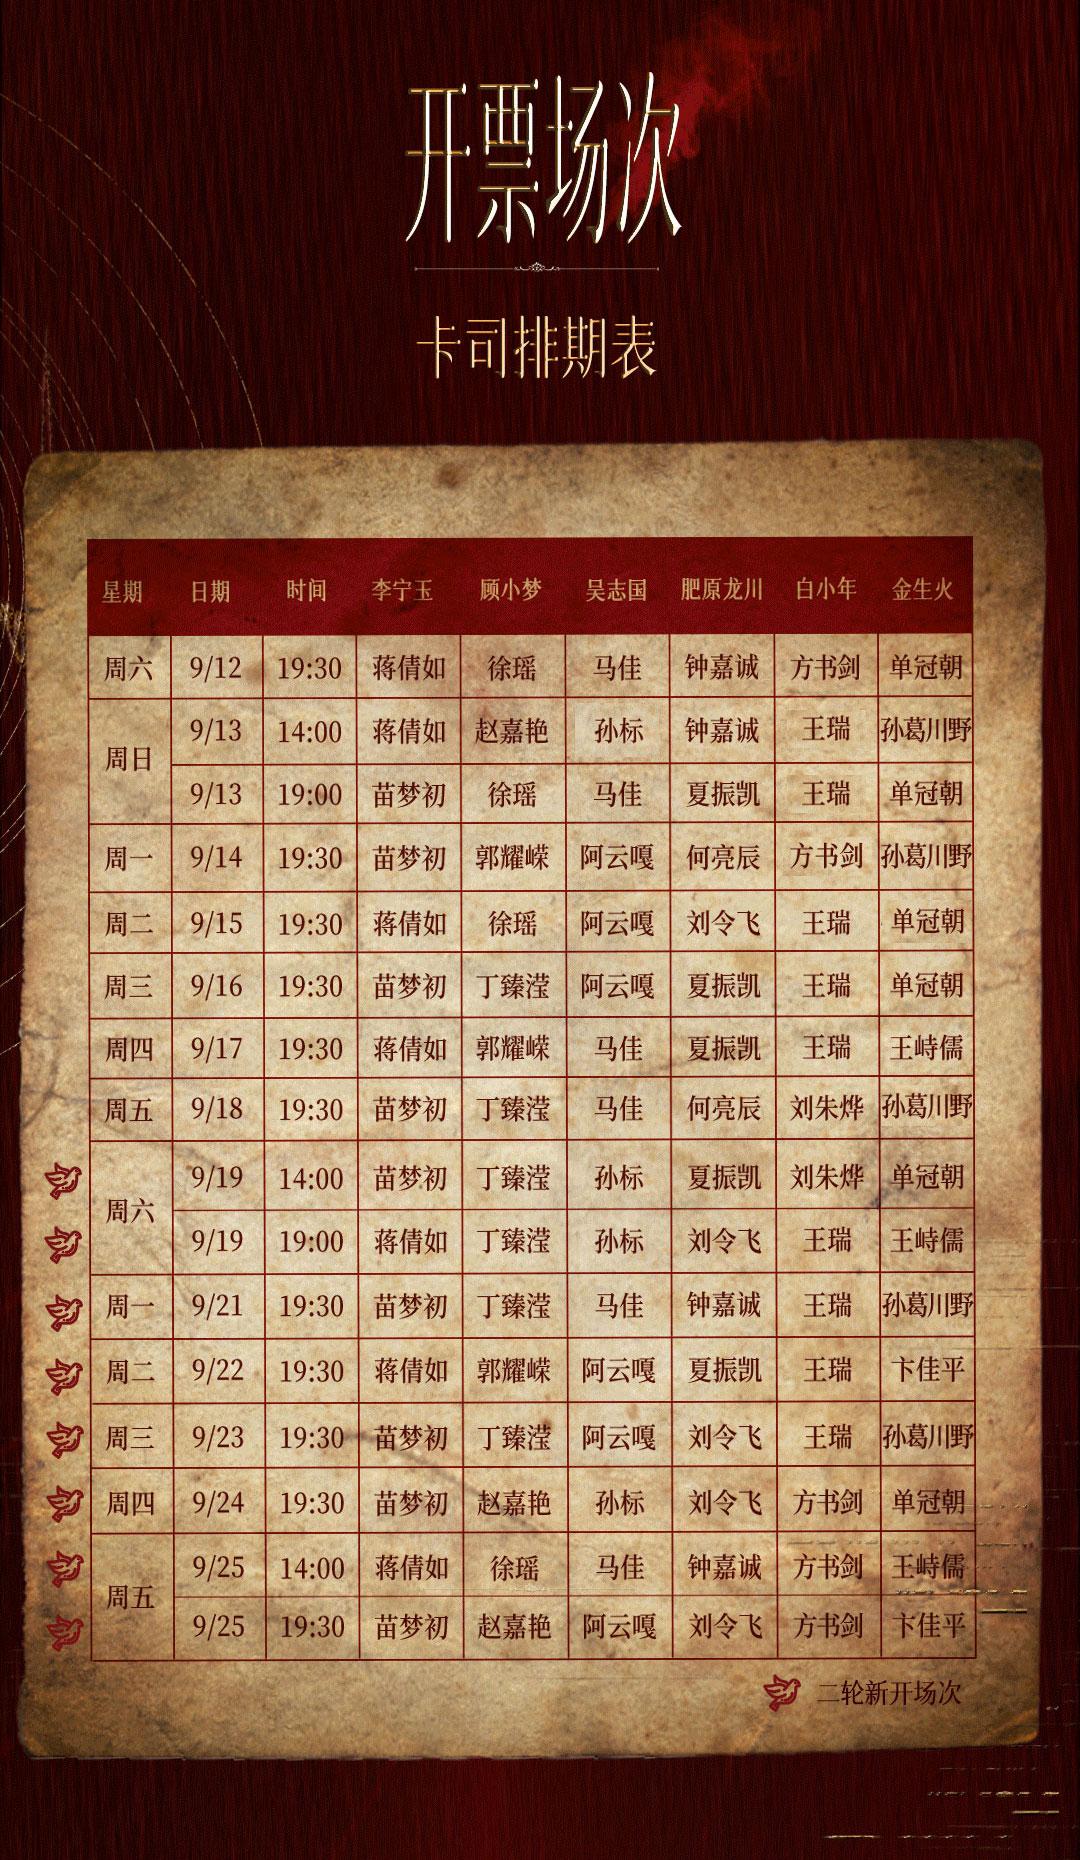 开票场次
卡司排期表
星期 日期 时间 李宁玉 顾小梦 吴志国 肥原龙川 白小年 金生火
周六 9/12 19:30 蒋倩如 徐瑶 马佳 钟嘉诚 方书剑 单冠朝
周日 9/13 14:00 蒋倩如 赵嘉艳 孙标 钟嘉诚 王瑞 孙葛川野
9/13 19:00 苗梦初 徐瑶 马佳 夏振凯 王瑞 单冠朝
周一 9/14 19:30 苗梦初 郭耀嵘 阿云嘎 何亮辰 方书剑 孙葛川野
周二 9/15 19:30 蒋倩如 徐瑶 阿云嘎 刘令飞 王瑞 单冠朝
周三 9/16 19:30 苗梦初 丁臻滢 阿云嘎 夏振凯 王瑞 单冠朝
周四 9/17 19:30 蒋倩如 郭耀嵘 马佳 夏振凯 王瑞 王峙儒
周五 9/18 19:30 苗梦初 丁臻滢 马佳 何亮辰 刘朱烨 孙葛川野
周六 9/19 14:00 苗梦初 丁臻滢 孙标 夏振凯 刘朱烨 单冠朝
9/19 19:00 蒋倩如 丁臻滢 孙标 刘令飞 王瑞 王峙儒
周一 9/21 19:30 苗梦初 丁臻滢 马佳 钟嘉诚 王瑞 孙葛川野
周二 9/22 19:30 蒋倩如 郭耀嵘 阿云嘎 夏振凯 王瑞 卞佳平
周三 9/23 19:30 苗梦初 丁臻滢 阿云嘎 刘令飞 王瑞 孙葛川野
周四 9/24 19:30 苗梦初 赵嘉艳 孙标 刘令飞 方书剑 单冠朝
周五 9/25 14:00 蒋倩如 徐瑶 马佳 钟嘉诚 方书剑 王峙儒
9/25 19:30 苗梦初 赵嘉艳 阿云嘎 刘令飞 方书剑 卞佳平
二轮新开场次